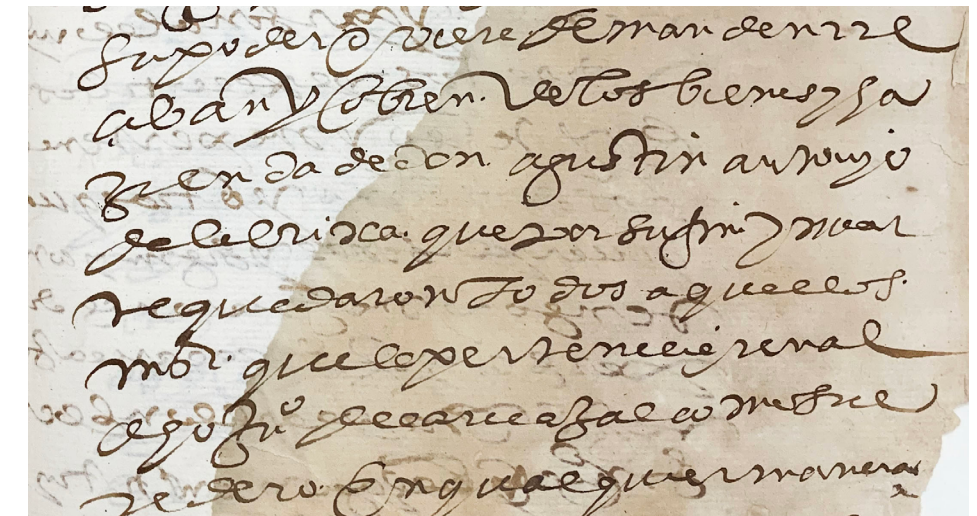 su poder q̃ viere demanden rre
çiban y cobren de los bienes y ha
zienda de don agustin arroyo
de lebrixa que por su fin y muer
te quedaron todos aquellos
mrs que le pertenecieren al
dho Ju° de larrea zalcomo su he
redero en qualquier manera